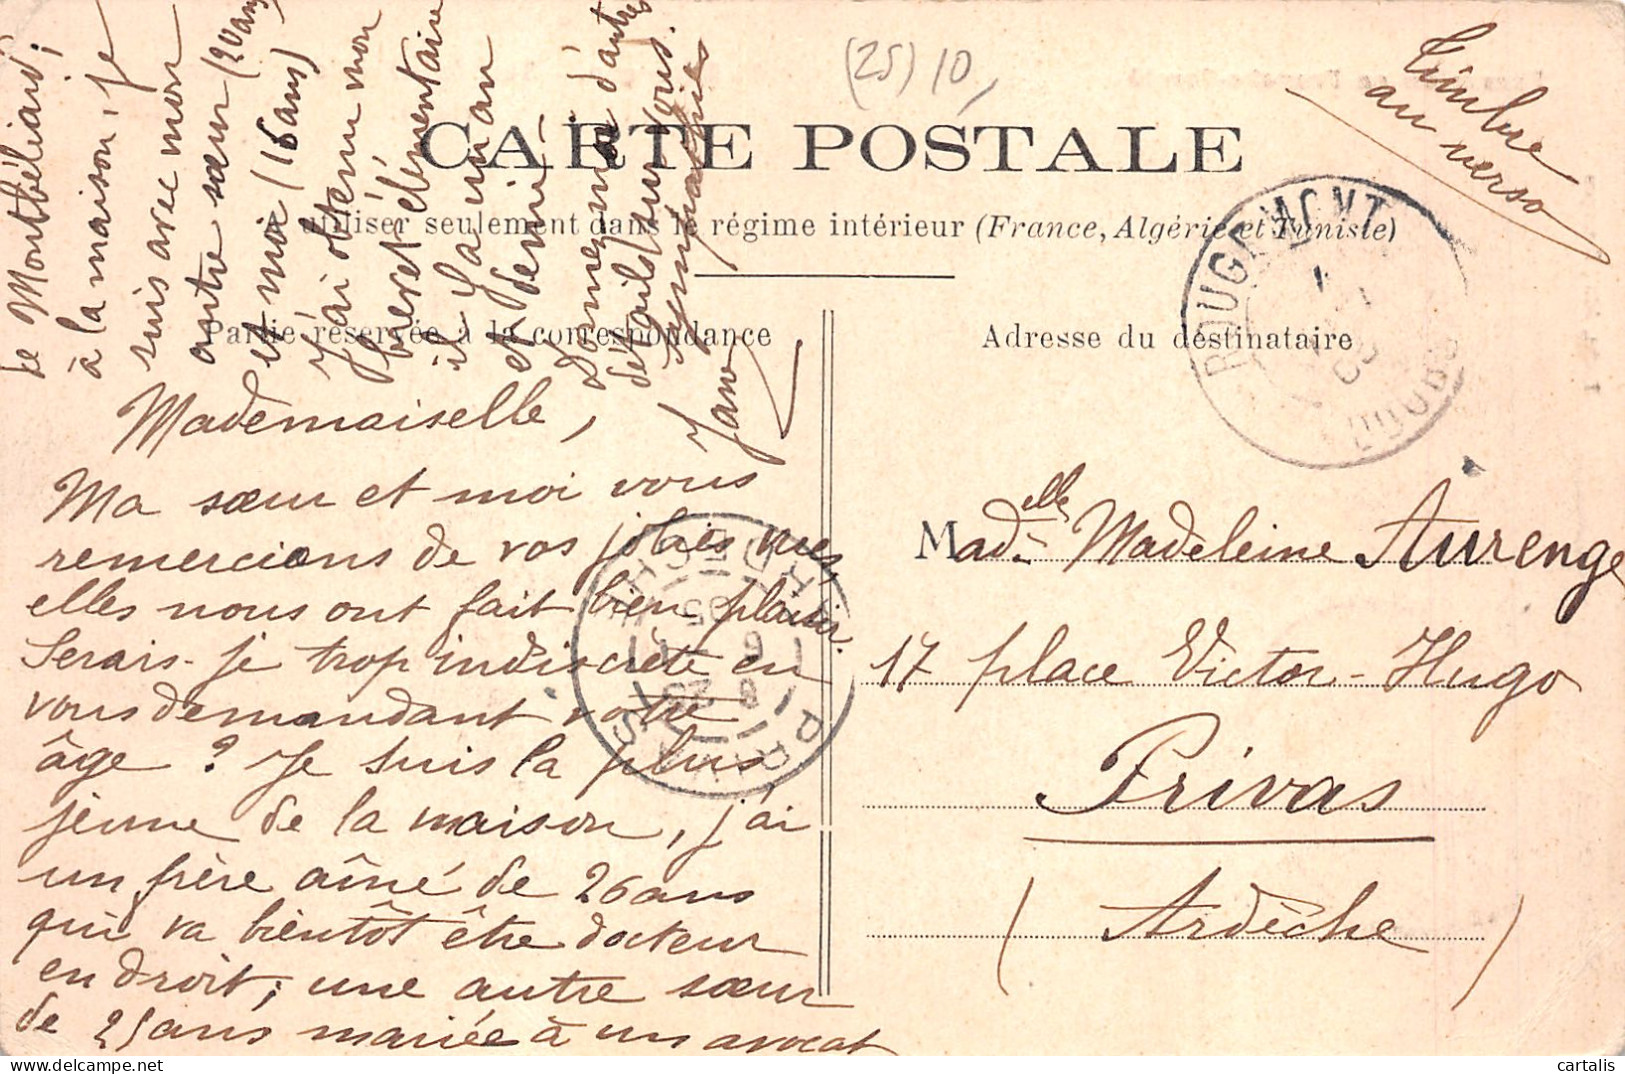 (25) 10,
Timbre
au verso
CARTE POSTALE
A utiliser seulement dans le régime intérieur (France, Algérie et Tunisie)
Partie réservée à la correspondance
Adresse du destinataire
ROUGEMONT
DOUBS
Mademoiselle,
Ma sœur et moi vous
remercions de vos jolies vues,
elles nous ont fait bien plaisir.
Serais-je trop indiscrète en
vous demandant votre
âge ? Je suis la plus
jeune de la maison, j'ai
un frère aîné de 26 ans
qui va bientôt être docteur
en droit; une autre sœur
de 25 ans mariée à un avocat
de Montbéliard;
à la maison, je
suis avec mon
autre sœur (20 ans)
et moi (16 ans)
J'ai obtenu mon
brevet élémentaire
il y a un an
et demi.
Donnez-moi d'autres
détails sur vous.
Sympathies
Jane
PRIVAS
ARDECHE
Madelle Madeleine Aurenge
17 place Victor-Hugo
Privas
(Ardèche)
cartalis